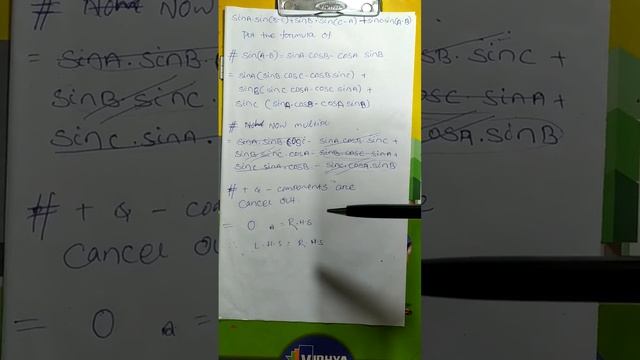 sinA.sin(B-C)+sinB.sin(C-A)+sinc.sin(A-B)
Put the formula of
# sin(A-B)= sinA.cosB- cosA sinB
= sinA(sinB.cosC-cosB sinc) +
sinB(sinc cosA-cosc sinA) +
sinc (sinA.cosB-cosA sinB)
# NOW multiple
= sinA.sinB cosc- sinA.cosB sinc+
sinB.sinc cosA- sinB.cosc sinA+
sinc sinA.cosB- sinc.cosA.sinB
# + & - components are
cancel out.
= 0 = R.H.S
∴ L.H.S = R.H.S
VIDHYA